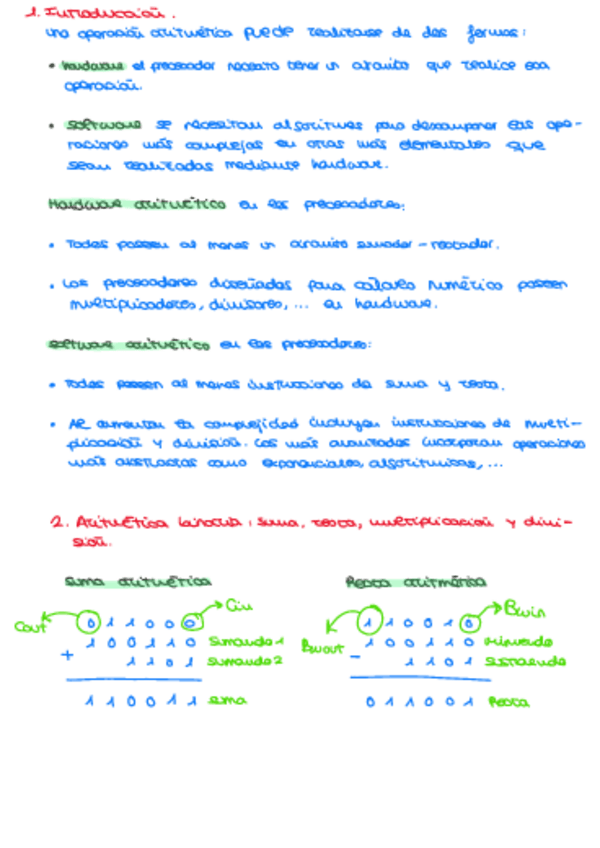 1. Introducción.
una operación aritmética puede realizarse de dos formas:
• hardware el procesador necesita tener un circuito que realice esa
operación.
• software se necesitan algoritmos para descomponer las ope-
raciones más complejas en otras más elementales que
sean realizadas mediante hardware.
Hardware aritmético en los procesadores:
• Todos poseen al menos un circuito sumador-restador.
• Los procesadores diseñados para cálculo numérico poseen
multiplicadores, divisores, ... en hardware.
software aritmético en los procesadores:
• Todos poseen al menos instrucciones de suma y resta.
• Al aumentar la complejidad incluyen instrucciones de multi-
plicación y división. Los más avanzados incorporan operaciones
más abstractas como exponenciales, algoritmos, ...
2. Aritmética binaria: suma, resta, multiplicación y divi-
sión.
Suma aritmética Resta aritmética
Cout 0 1 1 0 0 0 Cin
1 0 0 1 1 0 Sumando 1
+ 1 1 0 1 Sumando 2
1 1 0 0 1 1 suma
Bwout 1 1 0 0 1 0 Bwin
1 0 0 1 1 0 Minuendo
- 1 1 0 1 Sustraendo
0 1 1 0 0 1 Resta